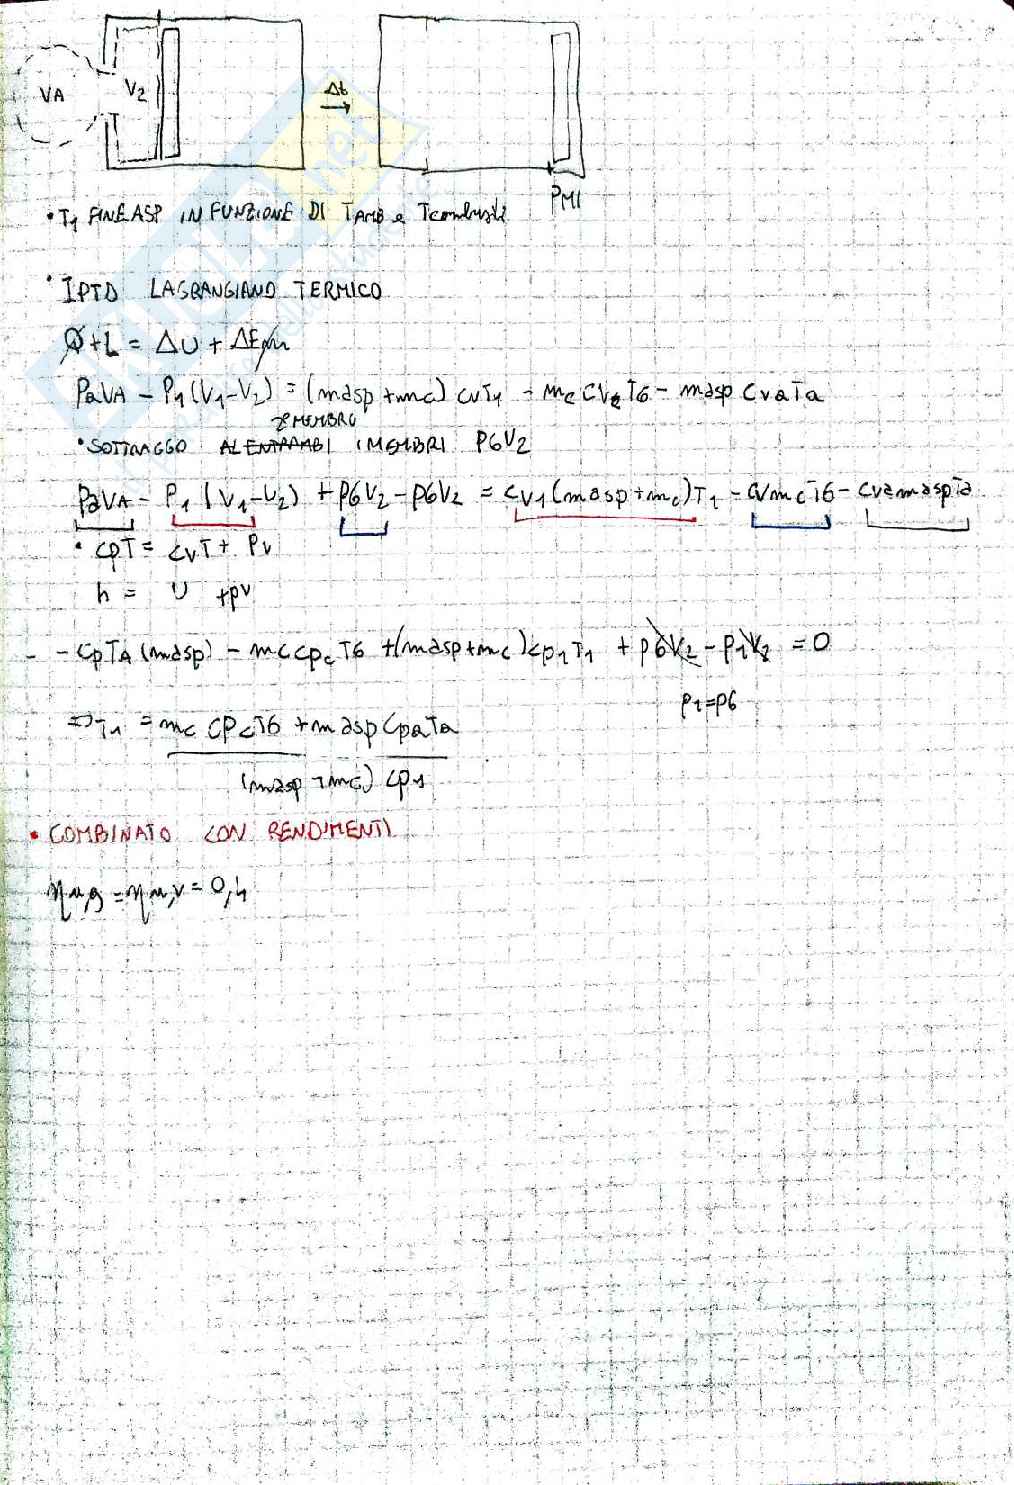 VA V2 Δt
PMI
• T1 FINE ASP IN FUNZIONE DI TAMB e Tcombusti
• IPTD LAGRANGIANO TERMICO
Q+L = ΔU + ΔEm
PaVA - P1(V1-V2) = (masp+mc) cvT1 - mc CVc T6 - masp CvaTa
2° MEMBRO
• SOTTRAGGO AL ENTRAMBI I MEMBRI P6V2
PaVA - P1 (V1-V2) + P6V2 - P6V2 = CV1(masp+mc)T1 - CVmcT6 - CvamaspTa
• CpT = CvT + Pv
h = U +pv
- - CpTA (masp) - mcCpcT6 +(masp+mc)cp1T1 + p6V2 - P1V2 = 0
P1=P6
=> T1 = mc CPcT6 + masp CpaTa
(masp +mc) Cp1
• COMBINATO CON RENDIMENTI
ηu,g = ηu,v = 0,4